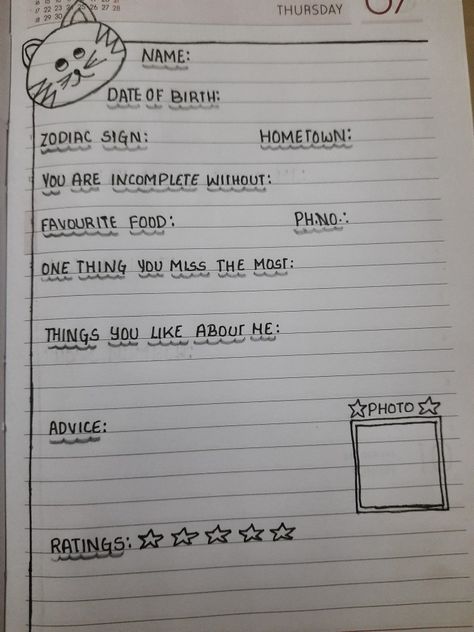 THURSDAY 07
NAME:
DATE OF BIRTH:
ZODIAC SIGN: HOMETOWN:
YOU ARE INCOMPLETE WITHOUT:
FAVOURITE FOOD: PH.NO.:
ONE THING YOU MISS THE MOST:
THINGS YOU LIKE ABOUT ME:
☆PHOTO☆
ADVICE:
RATINGS: ☆ ☆ ☆ ☆ ☆